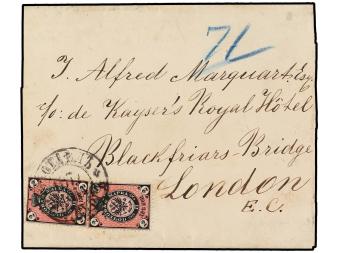 71
J. Alfred Marquart Esq.
c/o: de Kayser's Royal Hôtel
Blackfriars-Bridge
London
E.C.